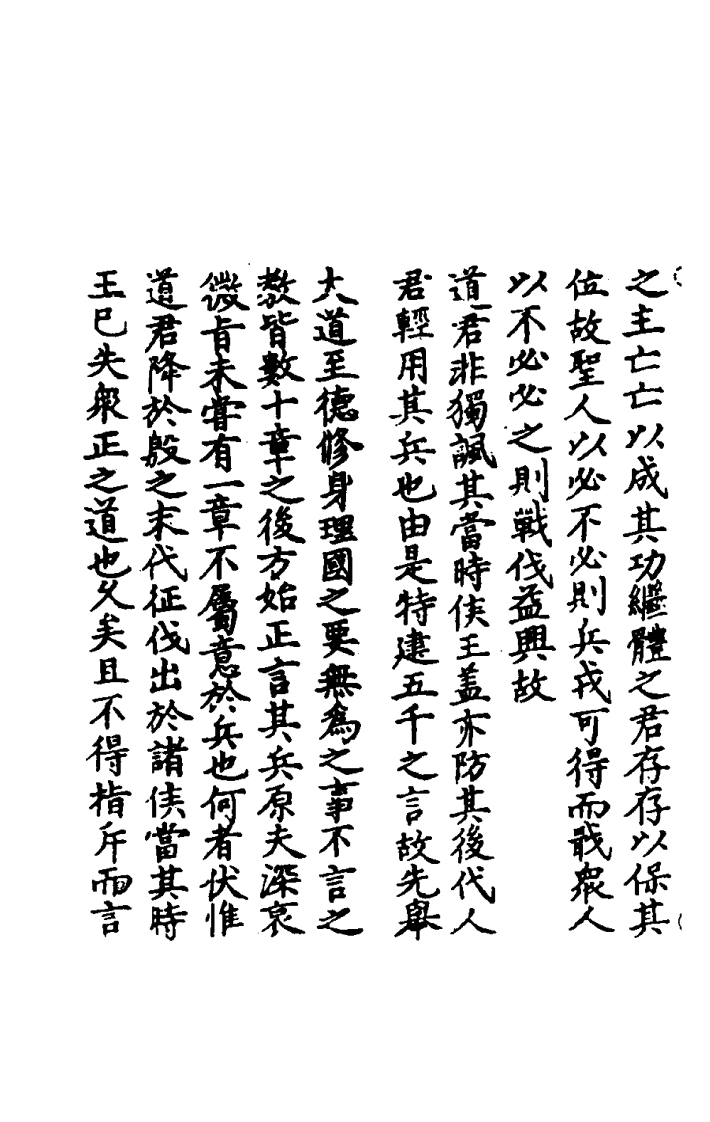 之主亡亡以成其功繼體之君存存以保其
位故聖人以必不必則兵戎可得而戢衆人
以不必必之則戰伐益興故
道君非獨諷其當時侯王蓋亦防其後代人
君輕用其兵也由是特建五千之言故先舉
大道至德修身理國之要無為之事不言之
教皆數十章之後方始正言其兵原夫深衷
微旨未嘗有一章不屬意於兵也何者伏惟
道君降於殷之末代征伐出於諸侯當其時
王已失衆正之道也久矣且不得指斥而言